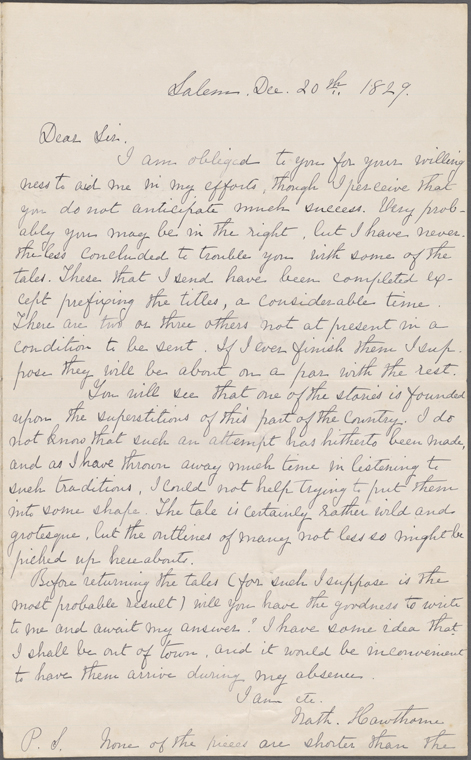 Salem. Dec. 20th. 1829.
Dear Sir.
I am obliged to you for your willing
ness to aid me in my efforts, though I perceive that
you do not anticipate much success. Very prob-
ably you may be in the right, but I have never-
the-less concluded to trouble you with some of the
tales. These that I send have been completed ex-
cept prefixing the titles, a considerable time.
There are two or three others not at present in a
condition to be sent. If I ever finish them I sup-
pose they will be about on a par with the rest.
You will see that one of the stories is founded
upon the superstitions of this part of the Country. I do
not know that such an attempt has hitherto been made,
and as I have thrown away much time in listening to
such traditions, I could not help trying to put them
into some shape. The tale is certainly rather wild and
grotesque, but the outlines of many not less so might be
picked up hereabouts.
Before returning the tales (for such I suppose is the
most probable result) will you have the goodness to write
to me and await my answer? I have some idea that
I shall be out of town, and it would be inconvenient
to have them arrive during my absence.
I am etc.
Nath. Hawthorne
P. S. None of the pieces are shorter than the